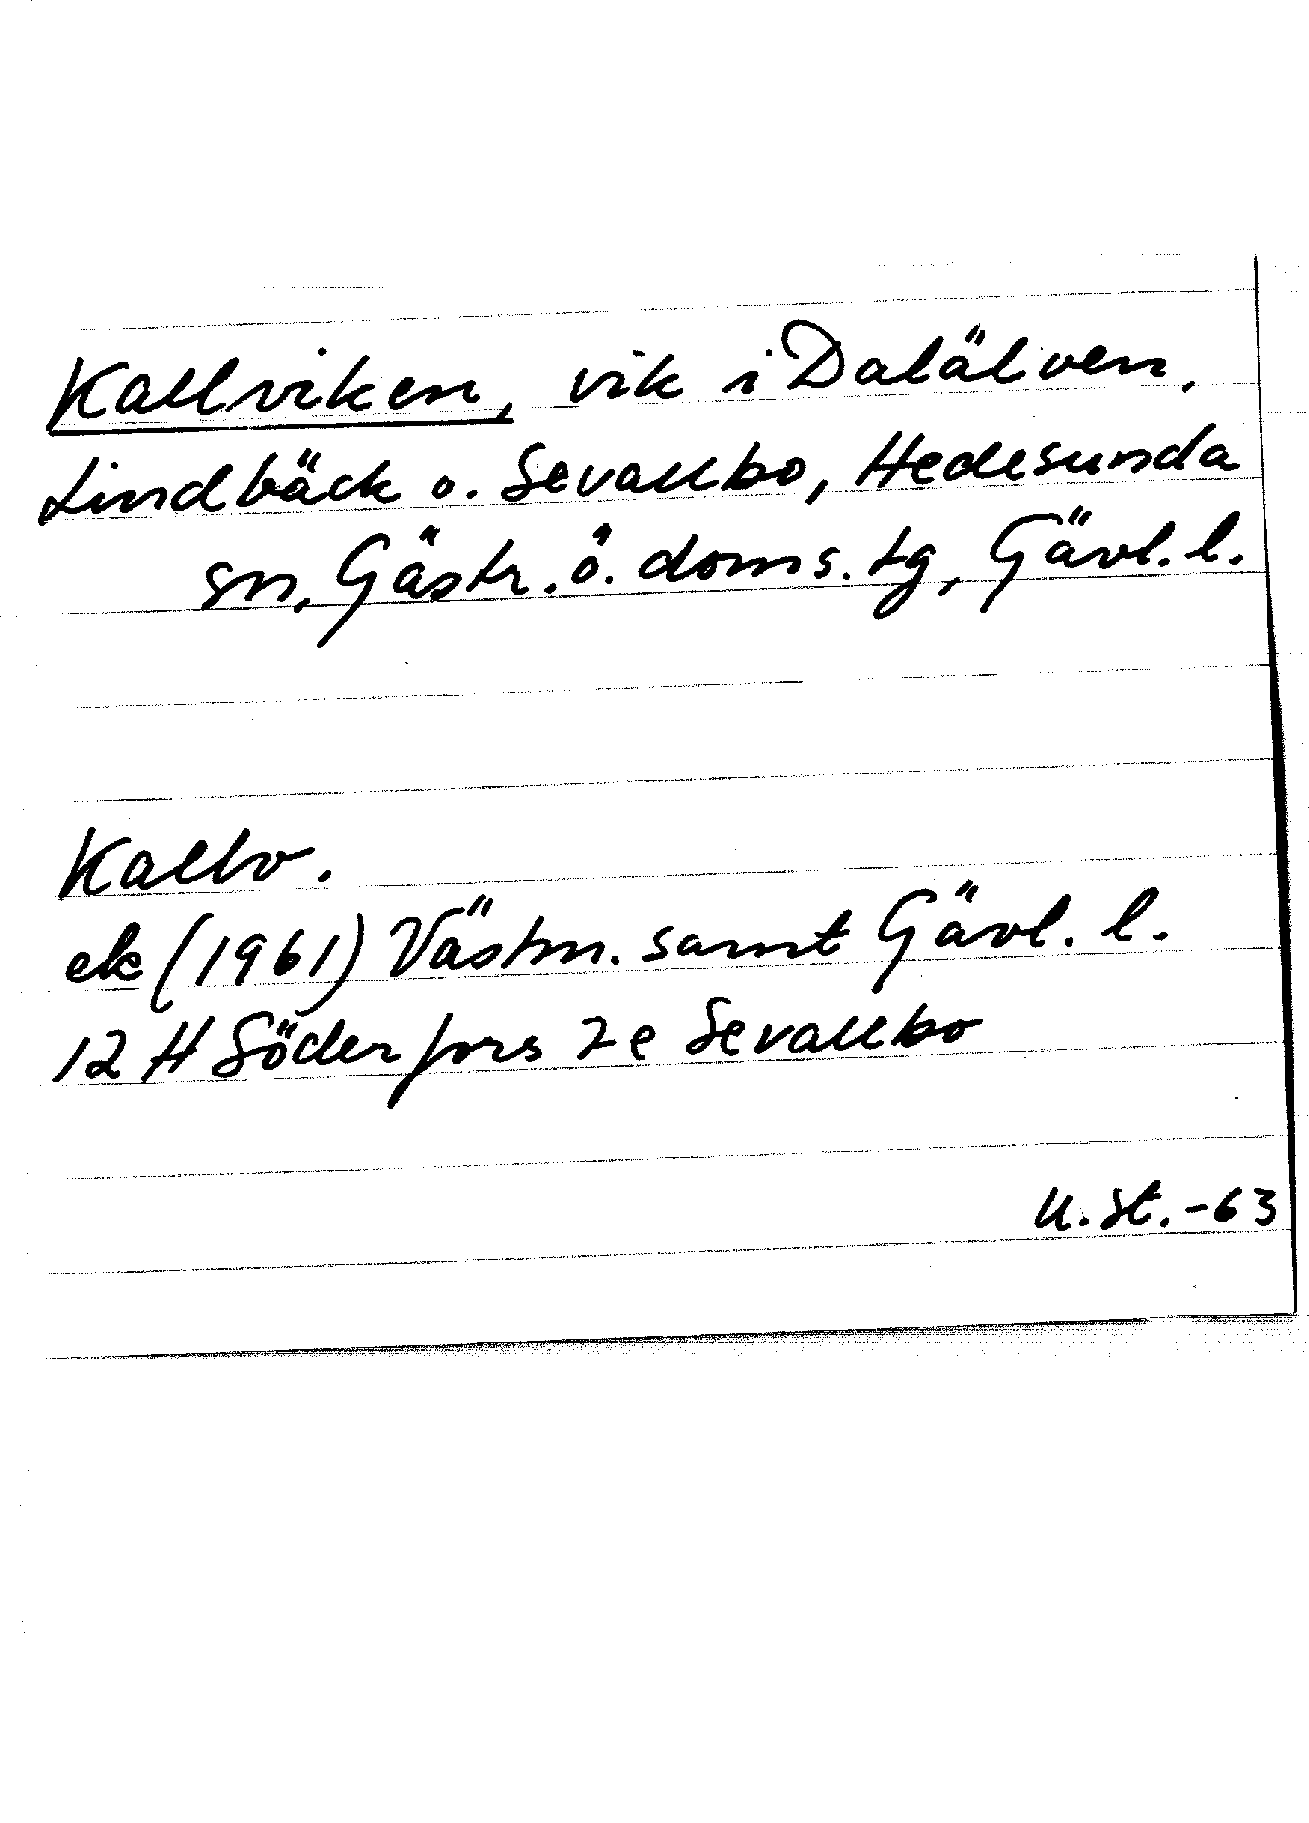 Kallviken, vik i Dalälven.
Lindbäck o. Sevallbo, Hedesunda
sn, Gästr. ö. doms. tg, Gävl. l.
Kallv.
ek (1961) Västm. samt Gävl. l.
12 H Söderfors 7e Sevallbo
U. St. -63